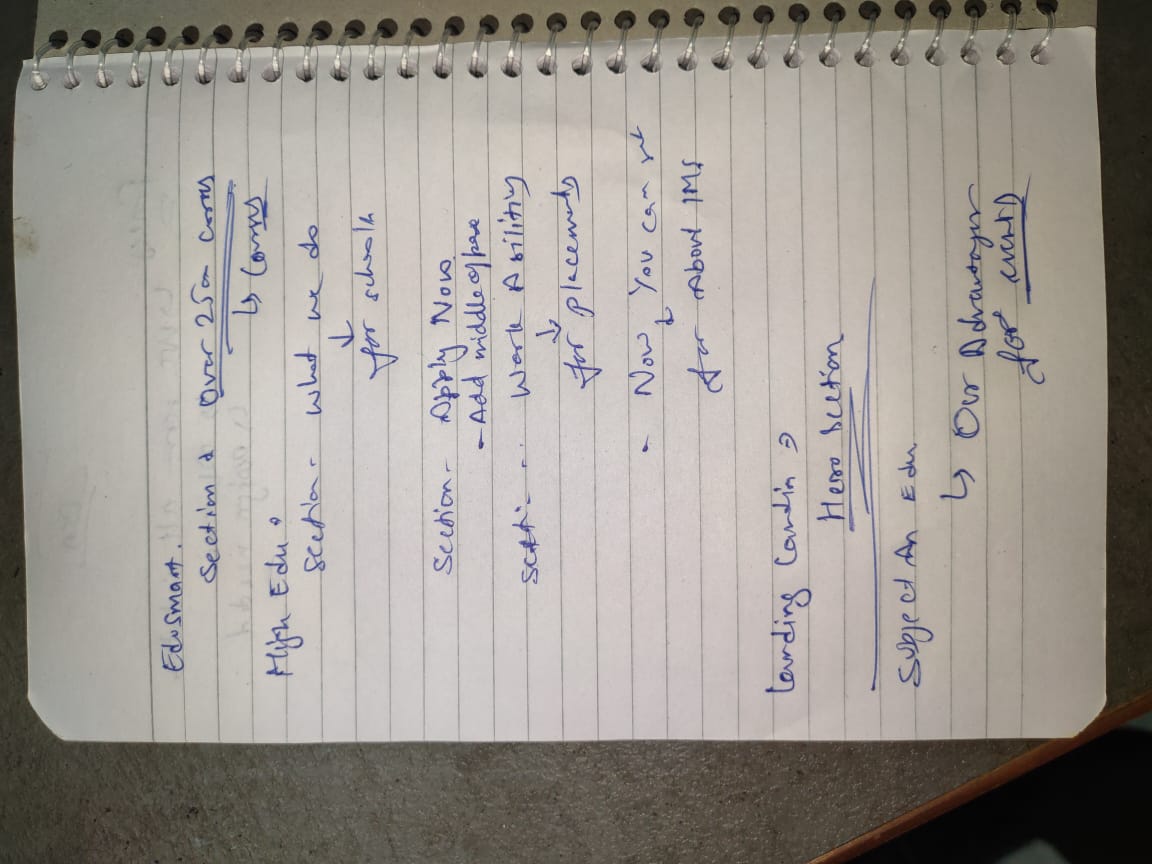 EduSmart.
Section → Over 250+
↳ Courses
High Edu →
Section - What we do
↓
for schools
Section - Apply Now
- Add middle of page
Secti - .. Work Abilitiy
↓
for placements
- Now, You can
↓
for About IMS
Landing →
Hero Section
Subject An Edu
↳ Our Advantages
for events